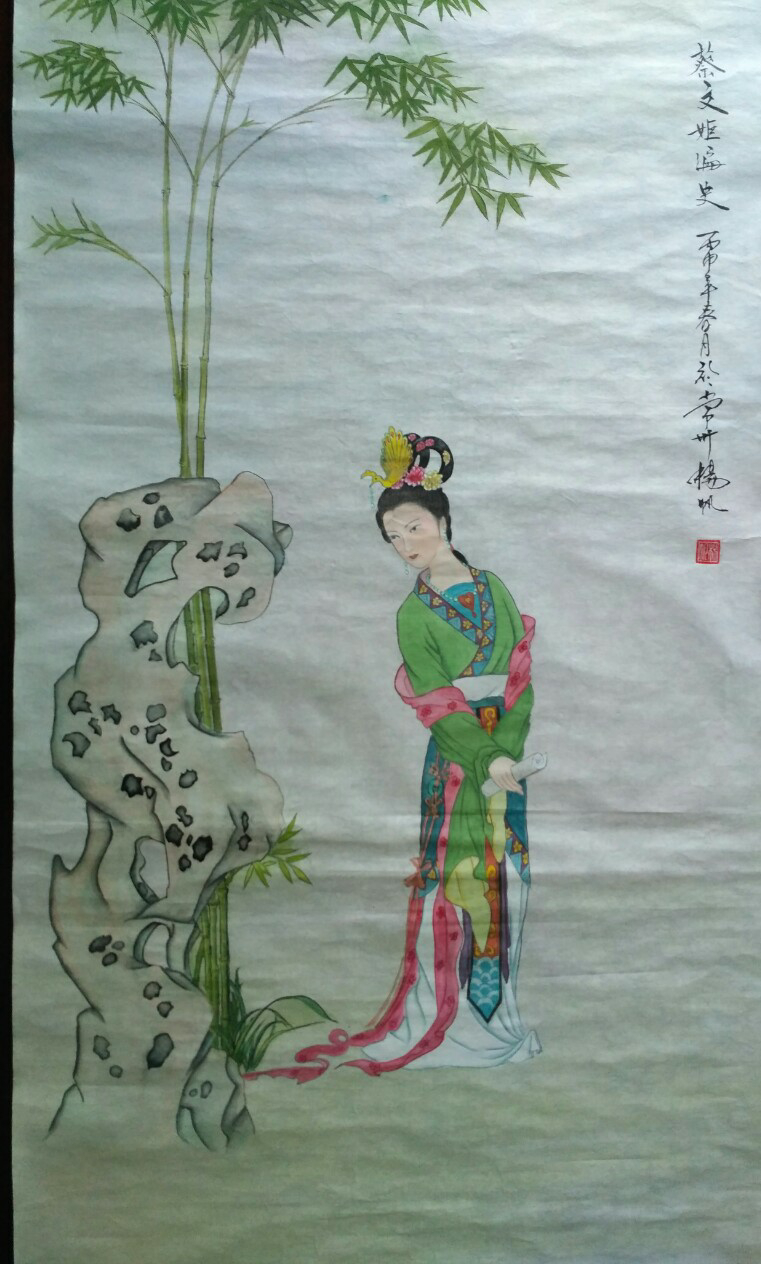 蔡文姬编史 丙申年春月於常州 楊帆